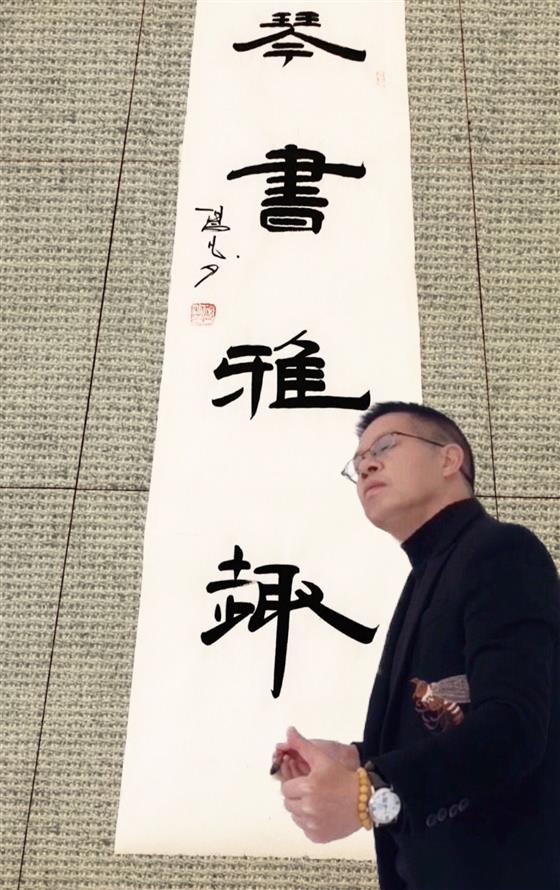 琴書雅趣